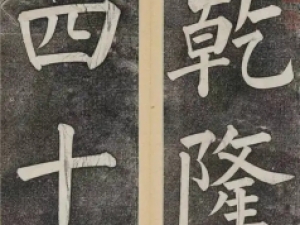 乾隆
四十